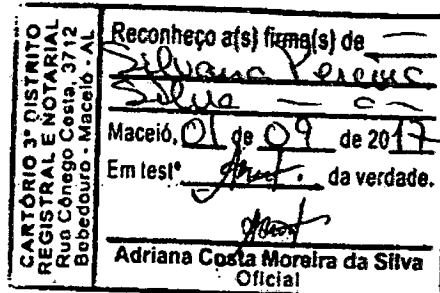 CARTÓRIO 3º DISTRITO
REGISTRAL E NOTARIAL
Rua Cônego Costa, 3712
Bebedouro - Maceió - AL
Reconheço a(s) firma(s) de
Silvana Pereira
Silva
Maceió, 01 de 09 de 2017
Em testº da verdade.
Adriana Costa Moreira da Silva
Oficial